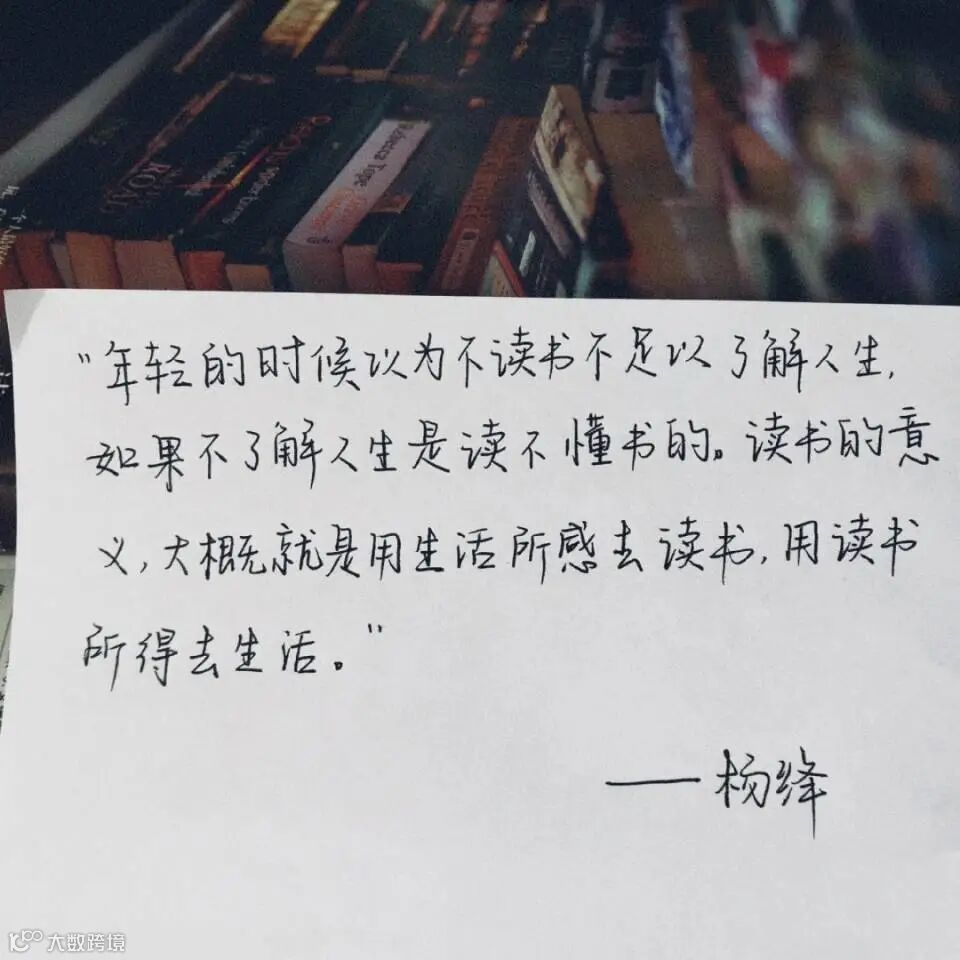 Rebecca Tope
"年轻的时候以为不读书不足以了解人生,
如果不了解人生是读不懂书的。读书的意
义,大概就是用生活所感去读书,用读书
所得去生活。"
——杨绛
大数跨境